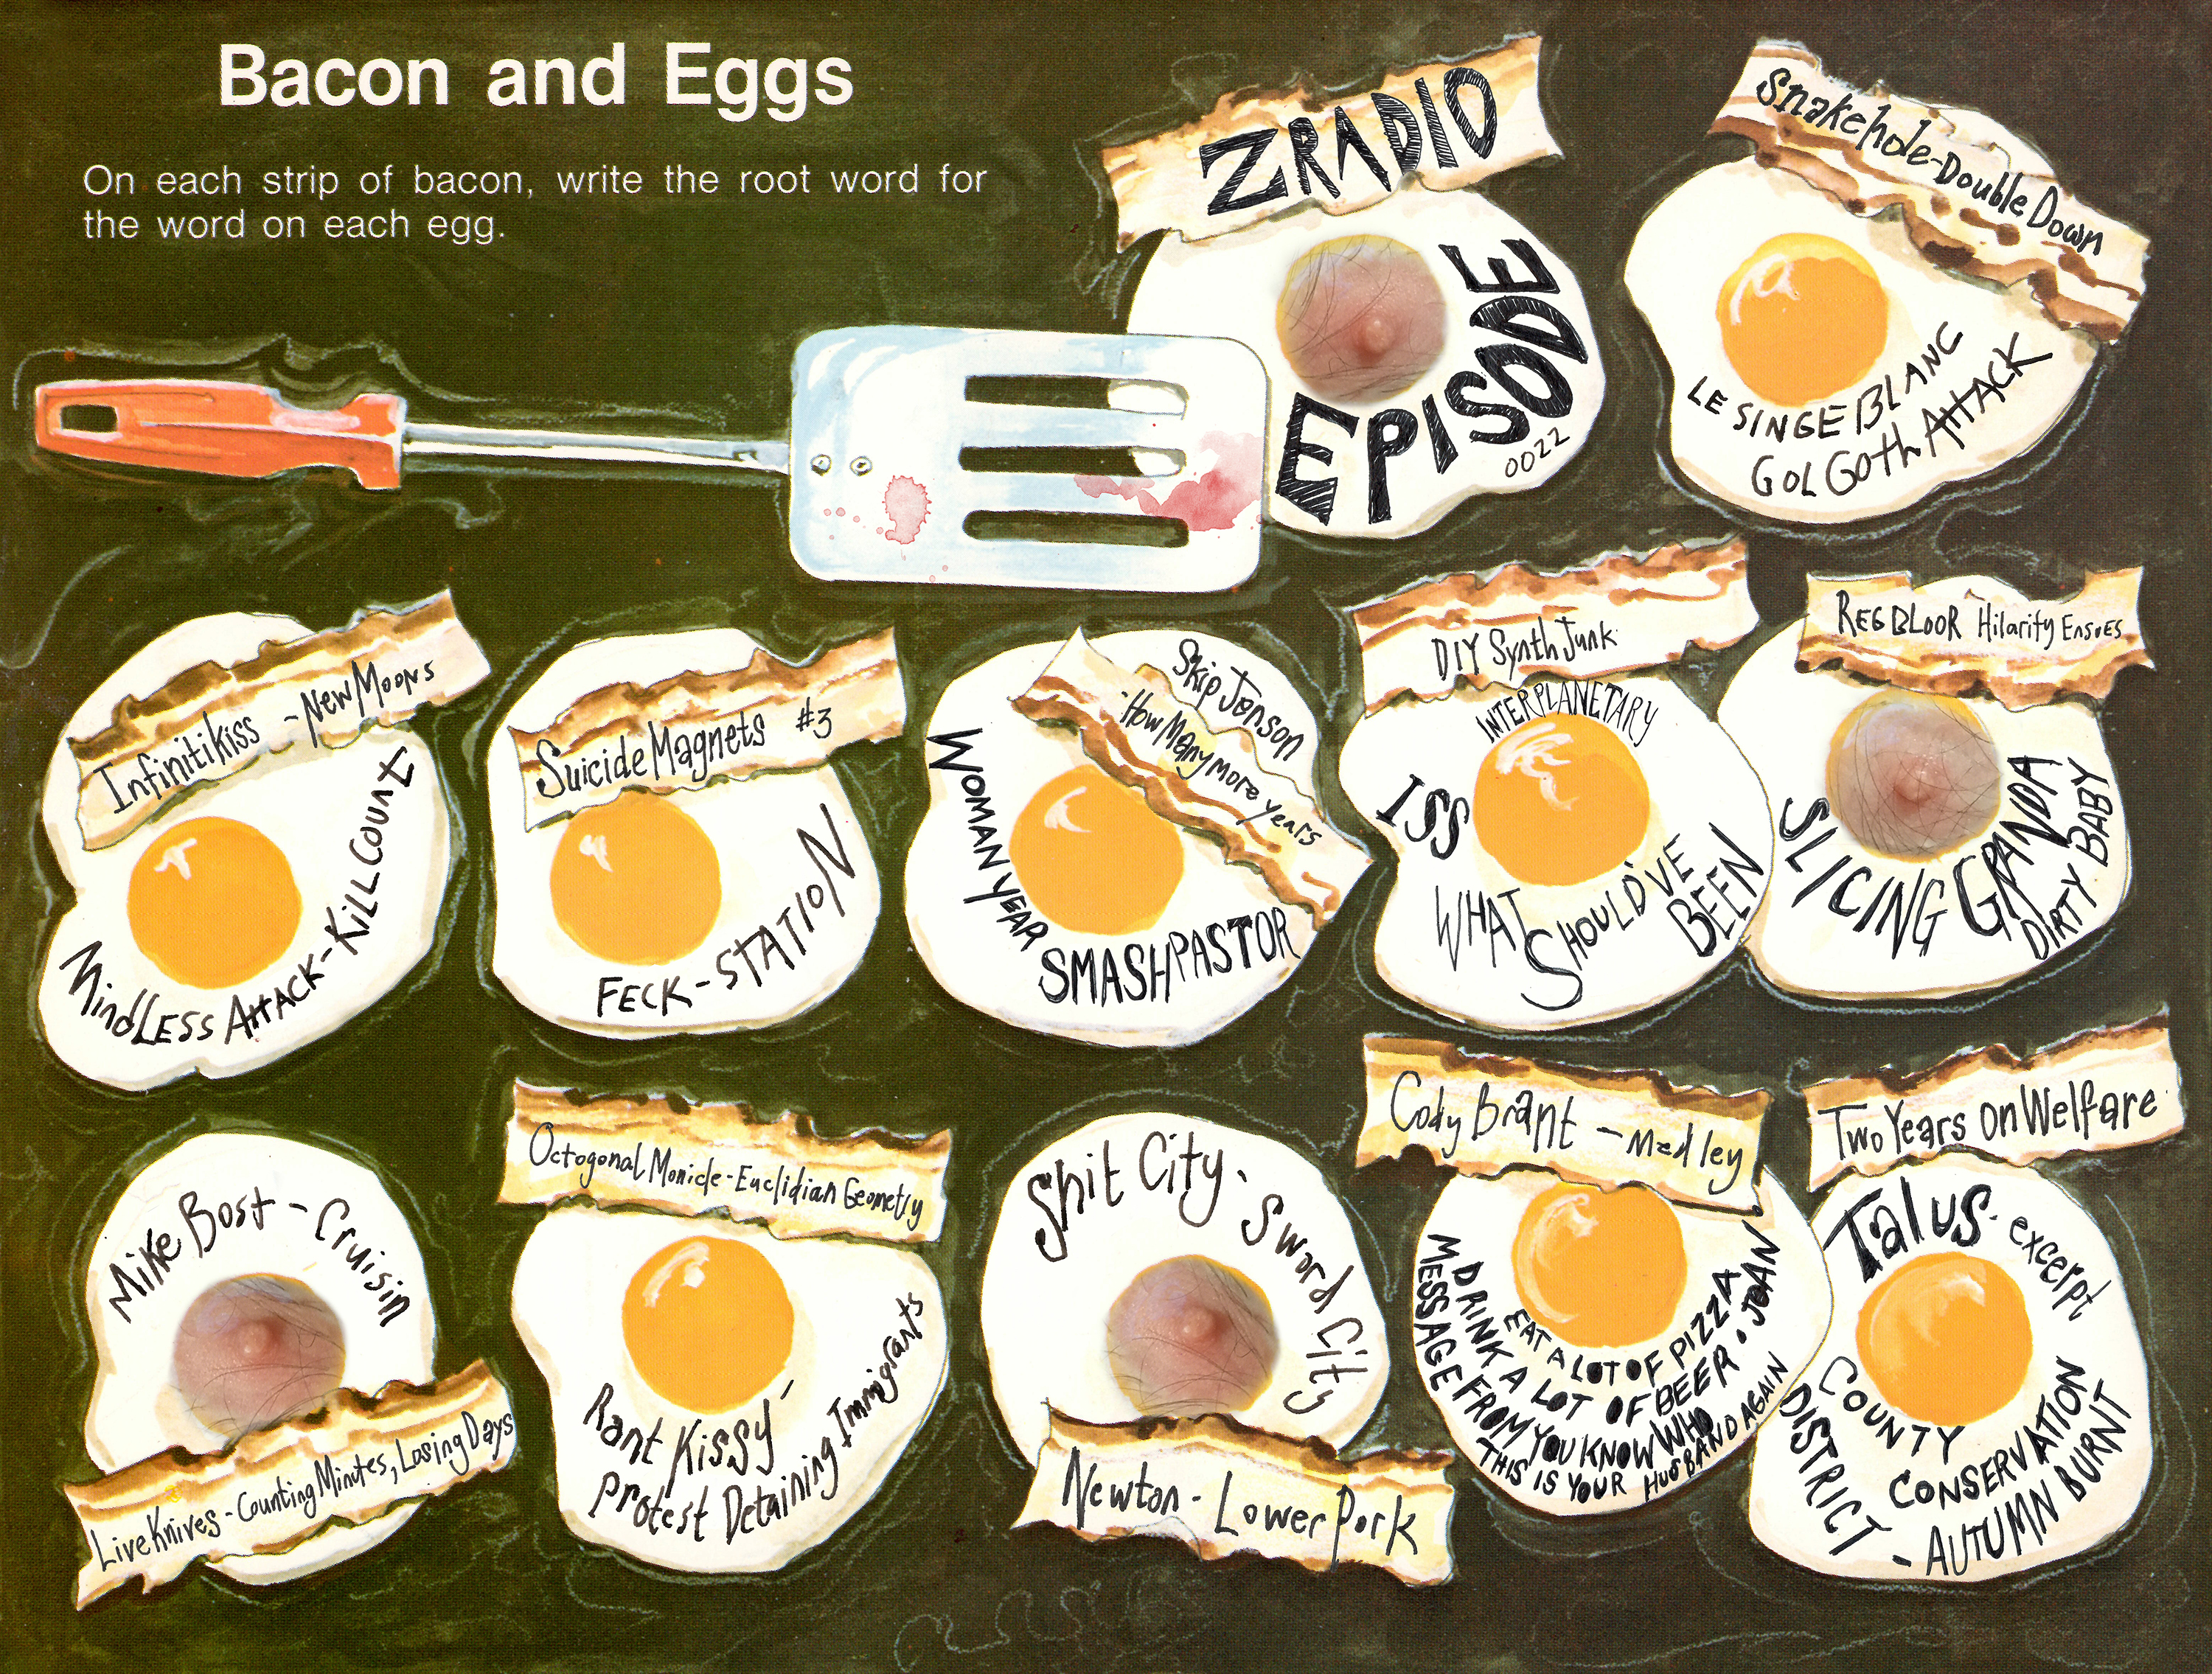 Bacon and Eggs
On each strip of bacon, write the root word for
the word on each egg.
ZRADIO
EPISODE
0022
Snakehole-Double Down
LE SINGE BLANC
GOLGOth AttACK
Infinitikiss - New Moons
MindLESS AttACK-KiLL COUNt
Suicide Magnets #3
FECK-STATION
Skip Jenson
-How Many more years
WOMAN YEAR
SMASHPASTOR
DIY Synth Junk
INTERPLANETARY
ISS
WHAT SHOULD'VE
BEEN
REG BLOOR Hilarity Ensues
SLICING GRANDA
DIRTY BABY
Mike Bost - Cruisin
Live Knives - Counting Minutes, Losing Days
Octogonal Monicle-Euclidian Geometry
Rant Kissy -
Protest Detaining Immigrants
Shit City. Sword City
Newton - Lower Pork
Cody Brant - Medley
EAT A LOT OF PIZZA
DRINK A LOT OF BEER • JOAN
MESSAGE FROM YOU KNOW WHO
THIS IS YOUR HUSBAND AGAIN
Two Years on Welfare
Talus- excerpt
COUNTY
CONSERVATION
DISTRICT
- AUTUMN BURNT